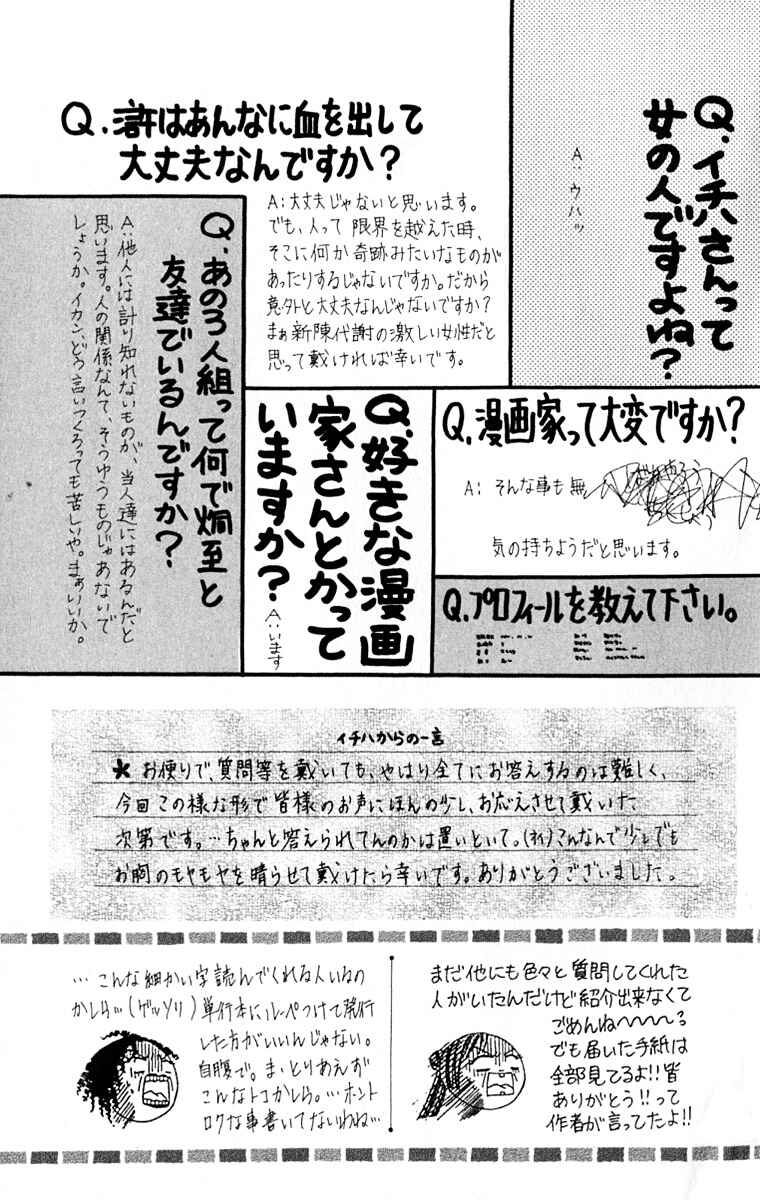 Q.イチハさんって
女の人ですよね?
A:ウハッ
Q.滸はあんなに血を出して
大丈夫なんですか?
A:大丈夫じゃないと思います。
でも、人って限界を越えた時、
そこに何か奇跡みたいなものが
あったりするじゃないですか。だから
意外と大丈夫なんじゃないですか?
まぁ新陳代謝の激しい女性だと
思って戴ければ幸いです。
Q.あの3人組って何で炯至と
友達でいるんですか?
A:他人には計り知れないものが、当人達にはあるんだと
思います。人の関係なんて、そうゆうものじゃあないで
しょうか。イカン、どう言いつくろっても苦しいや。まぁいいか。
Q.好きな漫画
家さんとかって
いますか?
A:います
Q.漫画家って大変ですか?
A:そんな事も無
気の持ちようだと思います。
Q.プロフィールを教えて下さい。
イチハからの一言
★お便りで、質問等を戴いても、やはり全てにお答えするのは難しく、
今回この様な形で皆様のお声にほんの少し、お応えさせて戴いた
次第です。…ちゃんと答えられてんのかは置いといて。(オイ)こんなんで少しでも
お胸のモヤモヤを晴らせて戴けたら幸いです。ありがとうございました。
…こんな細かい字読んでくれる人いるの
かしら…(ゲッソリ)単行本にルーペつけて発行
した方がいいんじゃない。
自腹で。ま、とりあえず
こんなトコかしら。…ホント
ロクな事書いてないわね…
まだ他にも色々と質問してくれた
人がいたんだけど紹介出来なくて
ごめんね〜〜〜る
でも届いた手紙は
全部見てるよ!!皆
ありがとう!!って
作者が言ってたよ!!